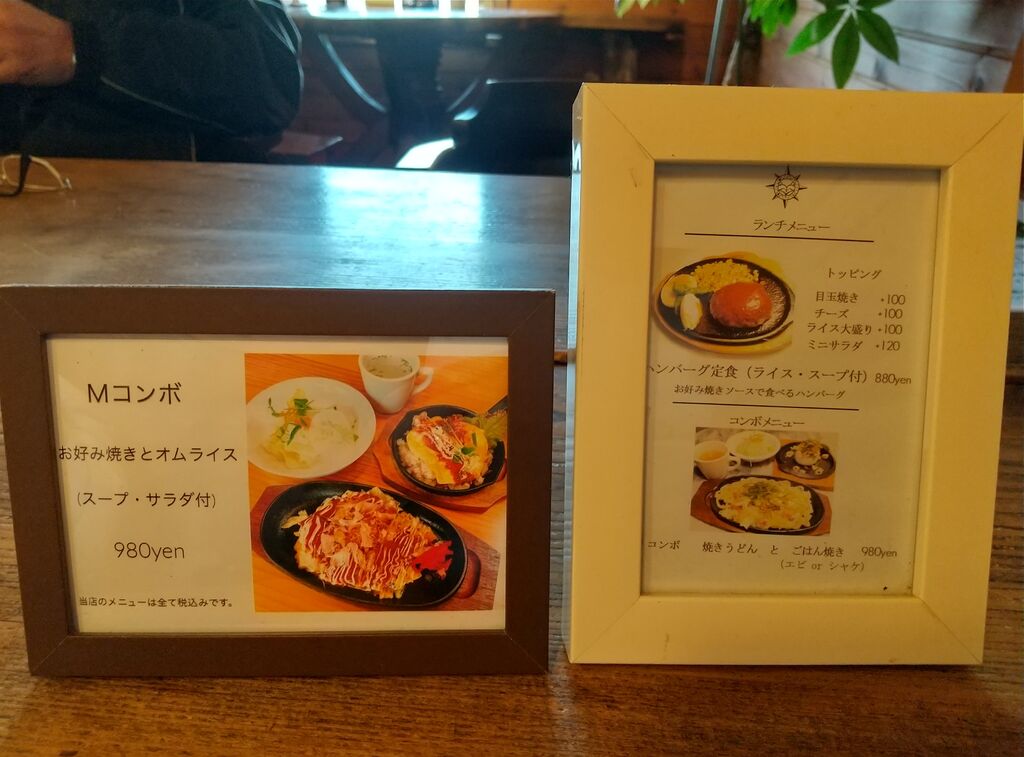 Mコンボ
お好み焼きとオムライス
(スープ・サラダ付)
980yen
当店のメニューは全て税込みです。
ランチメニュー
トッピング
目玉焼き +100
チーズ +100
ライス大盛り +100
ミニサラダ +120
ハンバーグ定食（ライス・スープ付）880yen
お好み焼きソースで食べるハンバーグ
コンボメニュー
コンボ 焼きうどん と ごはん焼き 980yen
（エビ or シャケ）